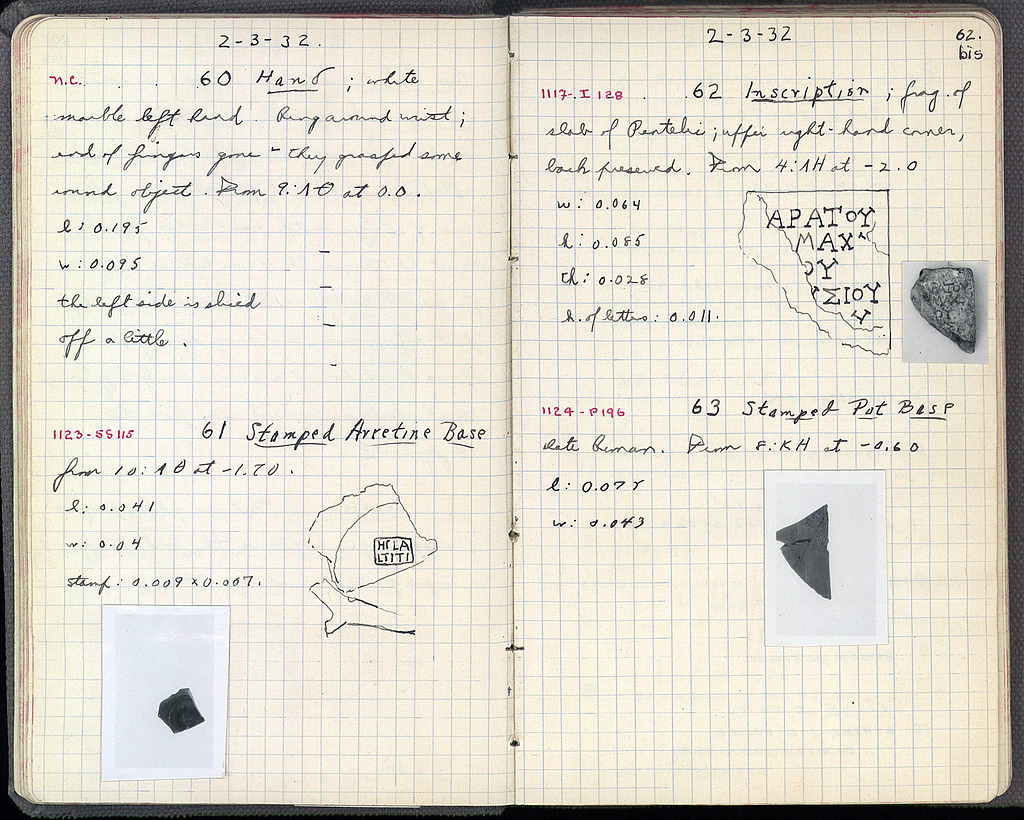 2-3-32.
n.c. . . 60 Hand ; white
marble left hand. Ring around wrist ;
end of fingers gone - they grasped some
round object. From 9:ΛΘ at 0.0.
l: 0.195
w: 0.095
the left side is sliced
off a little.
1123-SS 115 61 Stamped Arretine Base
from 10:ΛΘ at -1.70.
l: 0.041
w: 0.04
stamp: 0.009 x 0.007.
HILA
LTITI
2-3-32
62.
bis
1117-I 128 . 62 Inscription ; frag. of
slab of Pentelic ; upper right-hand corner,
back preserved. From 4:ΛΗ at -2.0
w: 0.064
h: 0.085
th: 0.028
h. of letters: 0.011.
ΑΡΑΤΟΥ
ΜΑΧ
ΟΥ
ΣΙΟΥ
1124-P196 63 Stamped Pot Base
Late Roman. From 8:ΚΗ at -0.60
l: 0.07
w: 0.043